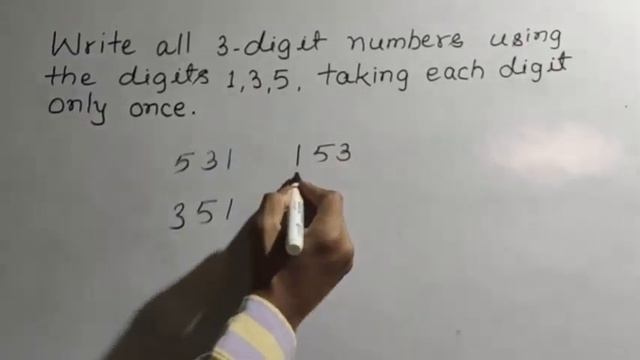 Write all 3-digit numbers using
the digits 1,3,5, taking each digit
only once.
531 153
351